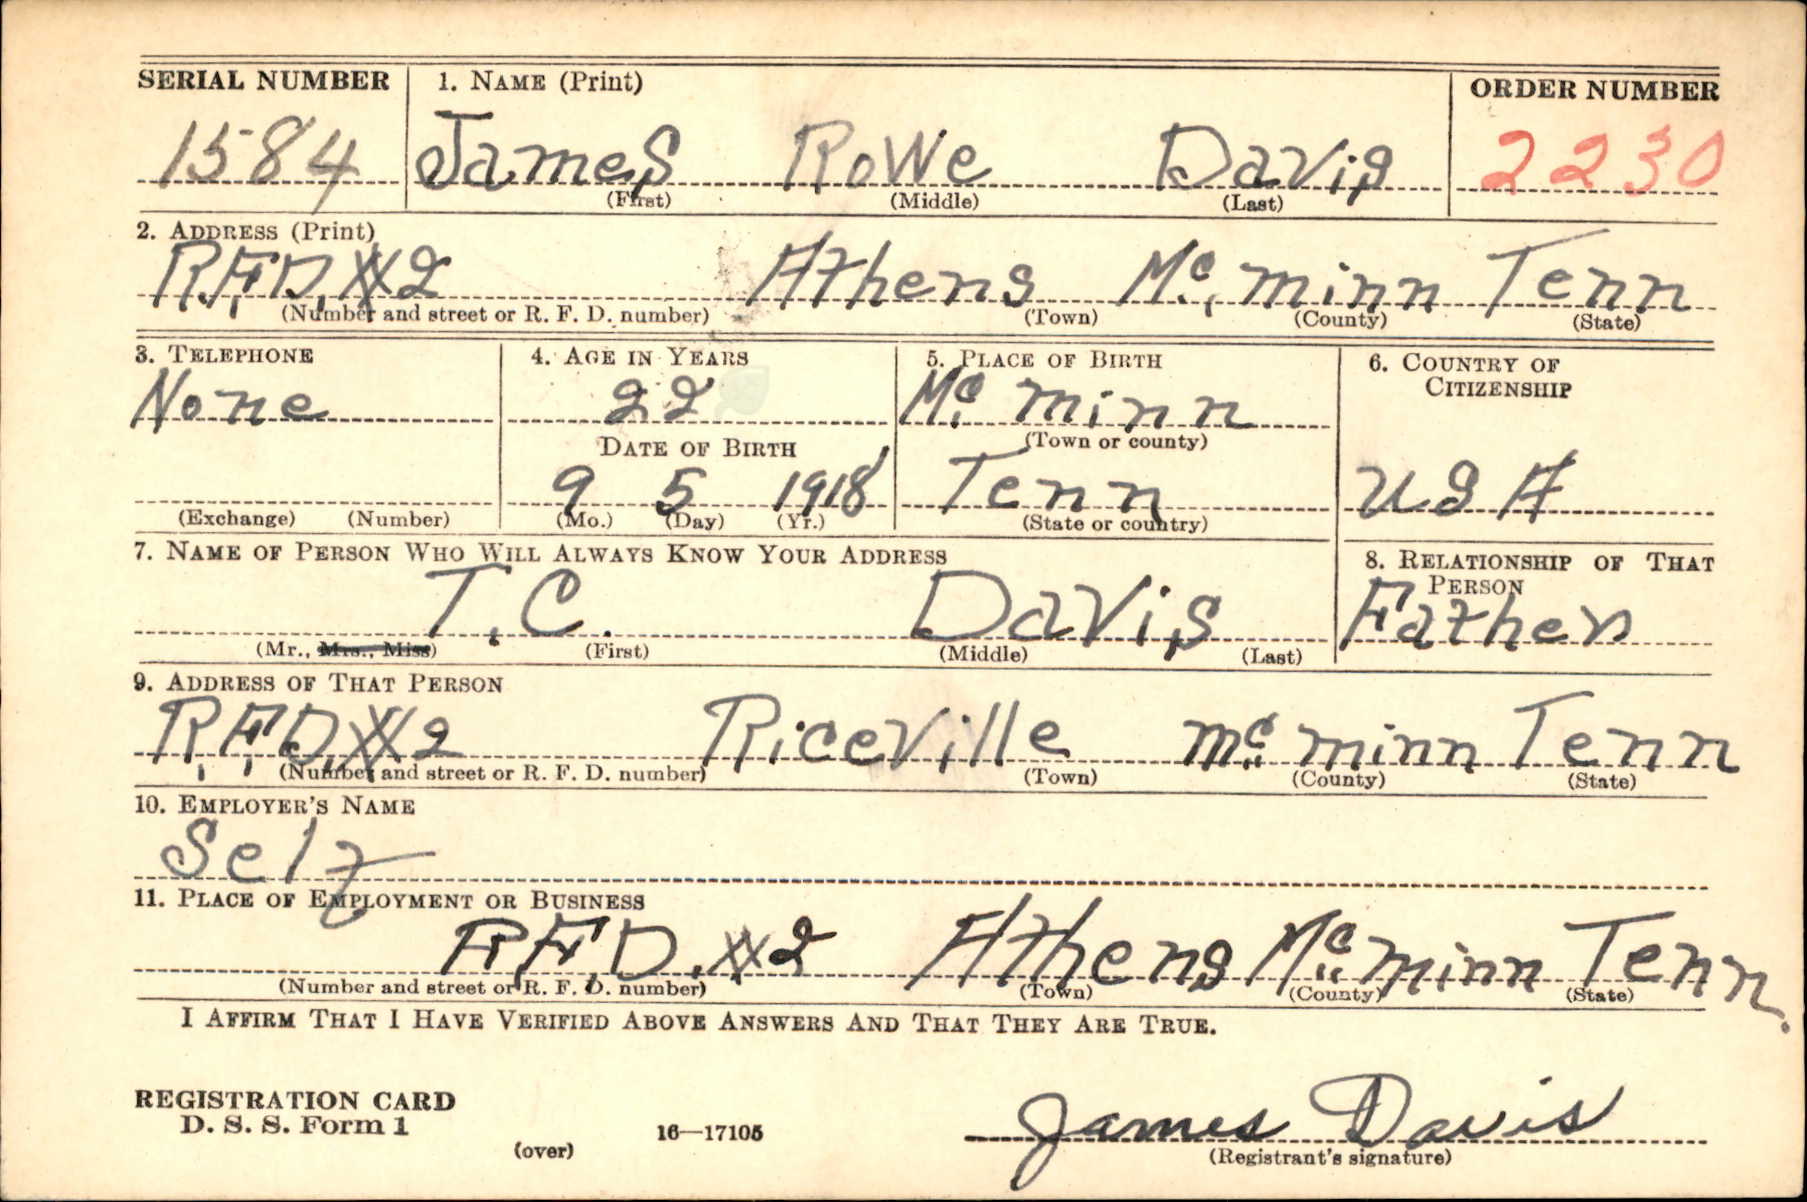 SERIAL NUMBER 1. NAME (Print) ORDER NUMBER
1584 James Rowe Davis 2230
(First) (Middle) (Last)
2. ADDRESS (Print)
R.F.D. #2 Athens Mc. minn Tenn
(Number and street or R. F. D. number) (Town) (County) (State)
3. TELEPHONE 4. AGE IN YEARS 5. PLACE OF BIRTH 6. COUNTRY OF CITIZENSHIP
None 22 Mc. minn
DATE OF BIRTH (Town or county)
9 5 1918 Tenn USA
(Exchange) (Number) (Mo.) (Day) (Yr.) (State or country)
7. NAME OF PERSON WHO WILL ALWAYS KNOW YOUR ADDRESS 8. RELATIONSHIP OF THAT PERSON
T. C. Davis Father
(Mr., Mrs., Miss) (First) (Middle) (Last)
9. ADDRESS OF THAT PERSON
R.F.D. #2 Riceville Mc. minn Tenn
(Number and street or R. F. D. number) (Town) (County) (State)
10. EMPLOYER'S NAME
Self
11. PLACE OF EMPLOYMENT OR BUSINESS
R.F.D. #2 Athens Mc. minn Tenn.
(Number and street or R. F. D. number) (Town) (County) (State)
I AFFIRM THAT I HAVE VERIFIED ABOVE ANSWERS AND THAT THEY ARE TRUE.
REGISTRATION CARD
D. S. S. Form 1 16—17105 James Davis
(over) (Registrant's signature)